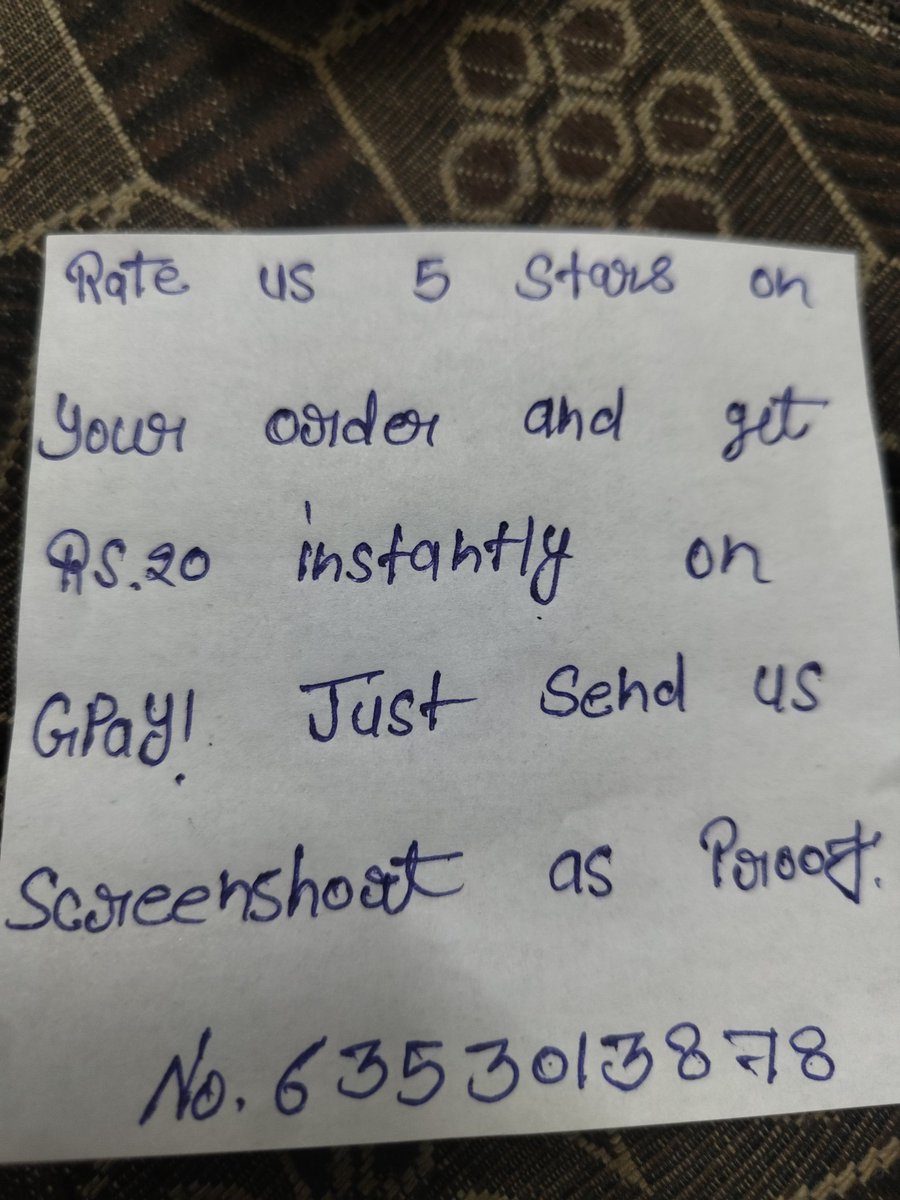 Rate us 5 Stars on
Your order and get
RS.20 instantly on
GPay! Just Send us
Screenshoot as Proof.
No. 6353013878